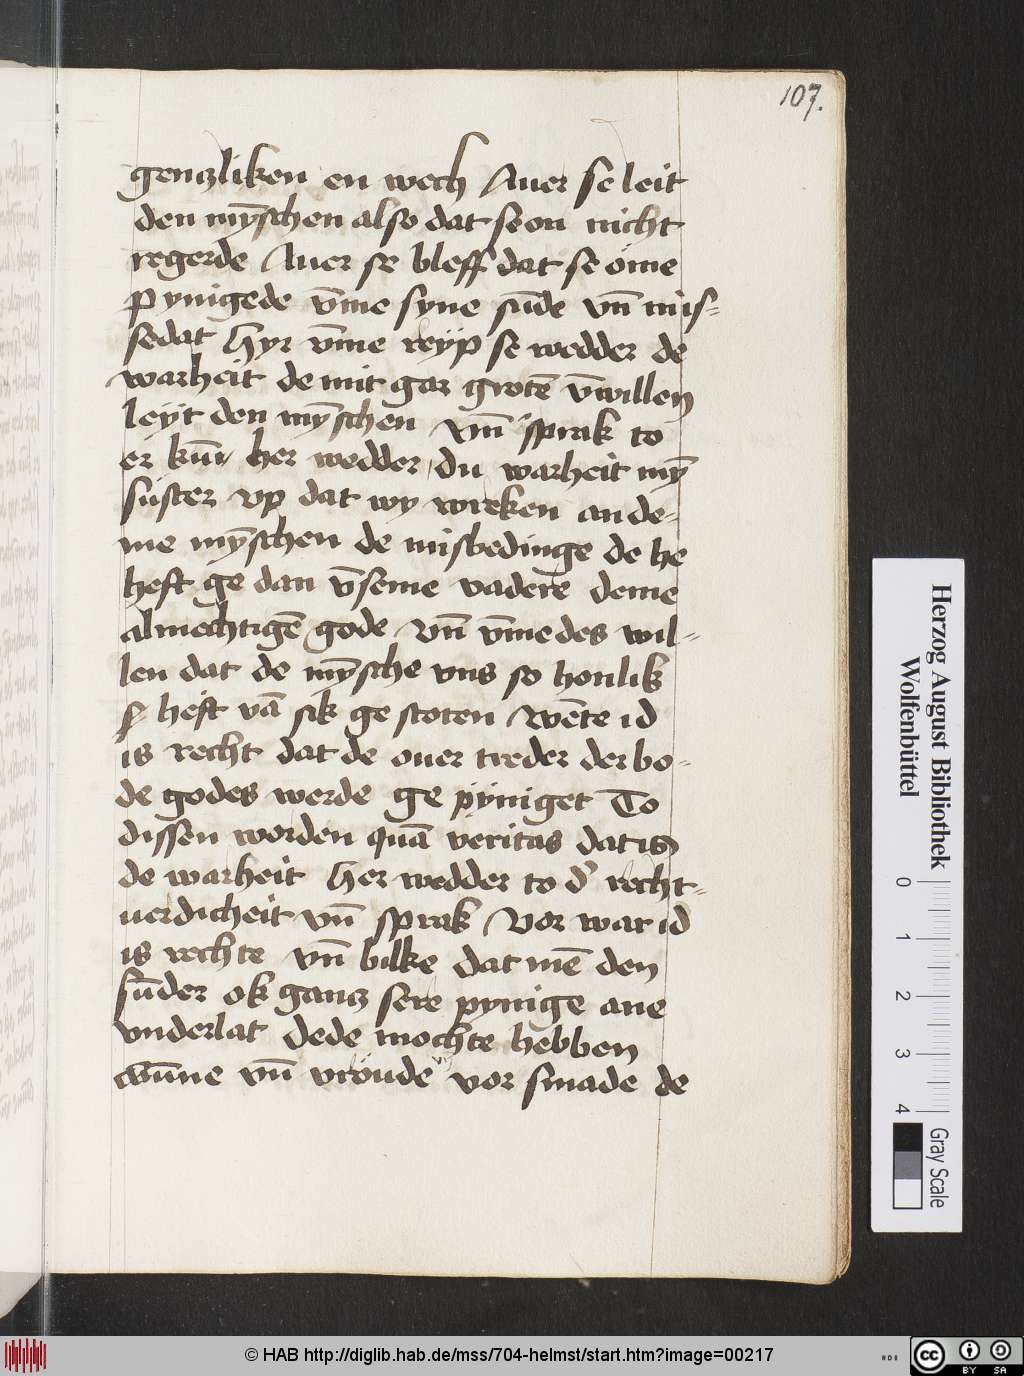 107.
genzliken en wech Auer se leit
den mȳschen also dat se on nicht
regerde Auer se bleff dat se ome
pynigede v̄me syne sūde vn̄ mis-
sedat Hyr v̄me reyp se wedder de
warheit de mit gar grotē v̄willen
leyt den mȳschen vn̄ sprak to
er kūm her wedder du warheit mȳ
suster vp dat wy wreken an de-
me mȳschen de misbedinge de he
heft ge dan v̄seme vadere deme
almechtigē gode vn̄ v̄me des wil-
len dat de mȳsche vns so honlik
heft vā sik ge stoten Wēte id
is recht dat de ouer treder der bo-
de godes werde ge pyniget To
dissen worden quā veritas dat is
de warheit her wedder to d' recht-
uerdicheit vn̄ sprak Vor war id
is rechte vn̄ bilke dat mē den
sūder ok ganz sere pynige ane
vnderlat dede mochte hebben
wūne vn̄ vroude vor smade de
Herzog August Bibliothek
Wolfenbüttel
0 1 2 3 4
Gray Scale
© HAB http://diglib.hab.de/mss/704-helmst/start.htm?image=00217
HAB
cc BY SA